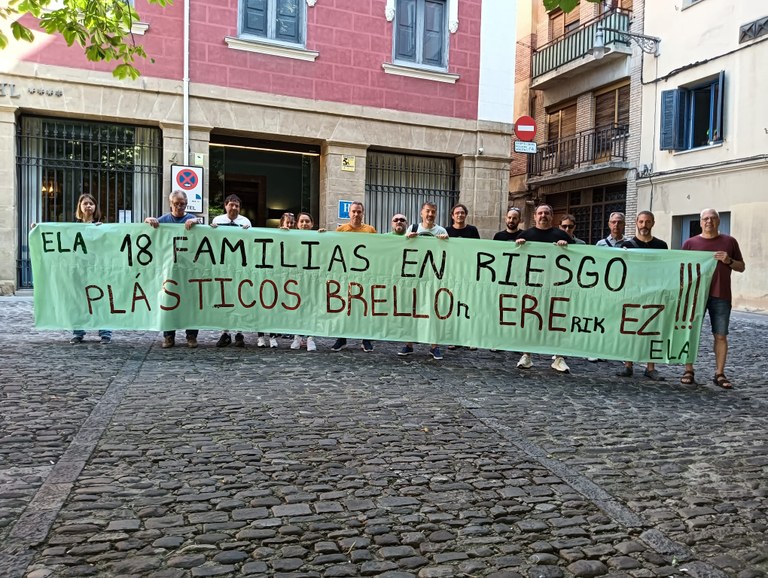 ELA 18 FAMILIAS EN RIESGO
PLÁSTICOS BRELLOn ERERIK EZ!!!
ELA